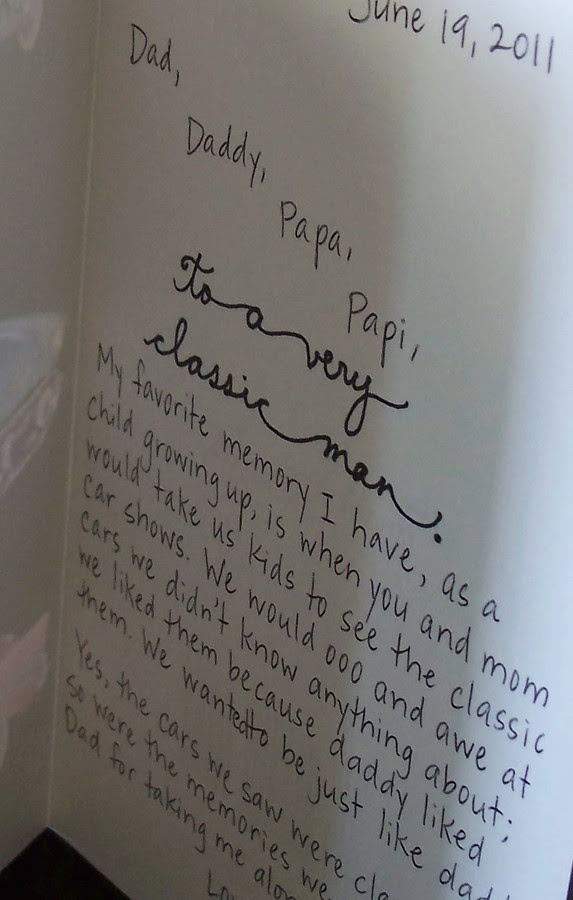 June 19, 2011
Dad,
Daddy,
Papa,
Papi,
to a very
classic man.
My favorite memory I have, as a
child growing up, is when you and mom
would take us kids to see the classic
car shows. We would ooo and awe at
cars we didn't know anything about;
we liked them because daddy liked
them. We wanted to be just like
Yes, the cars we saw were
so were the memories we
Dad for taking me